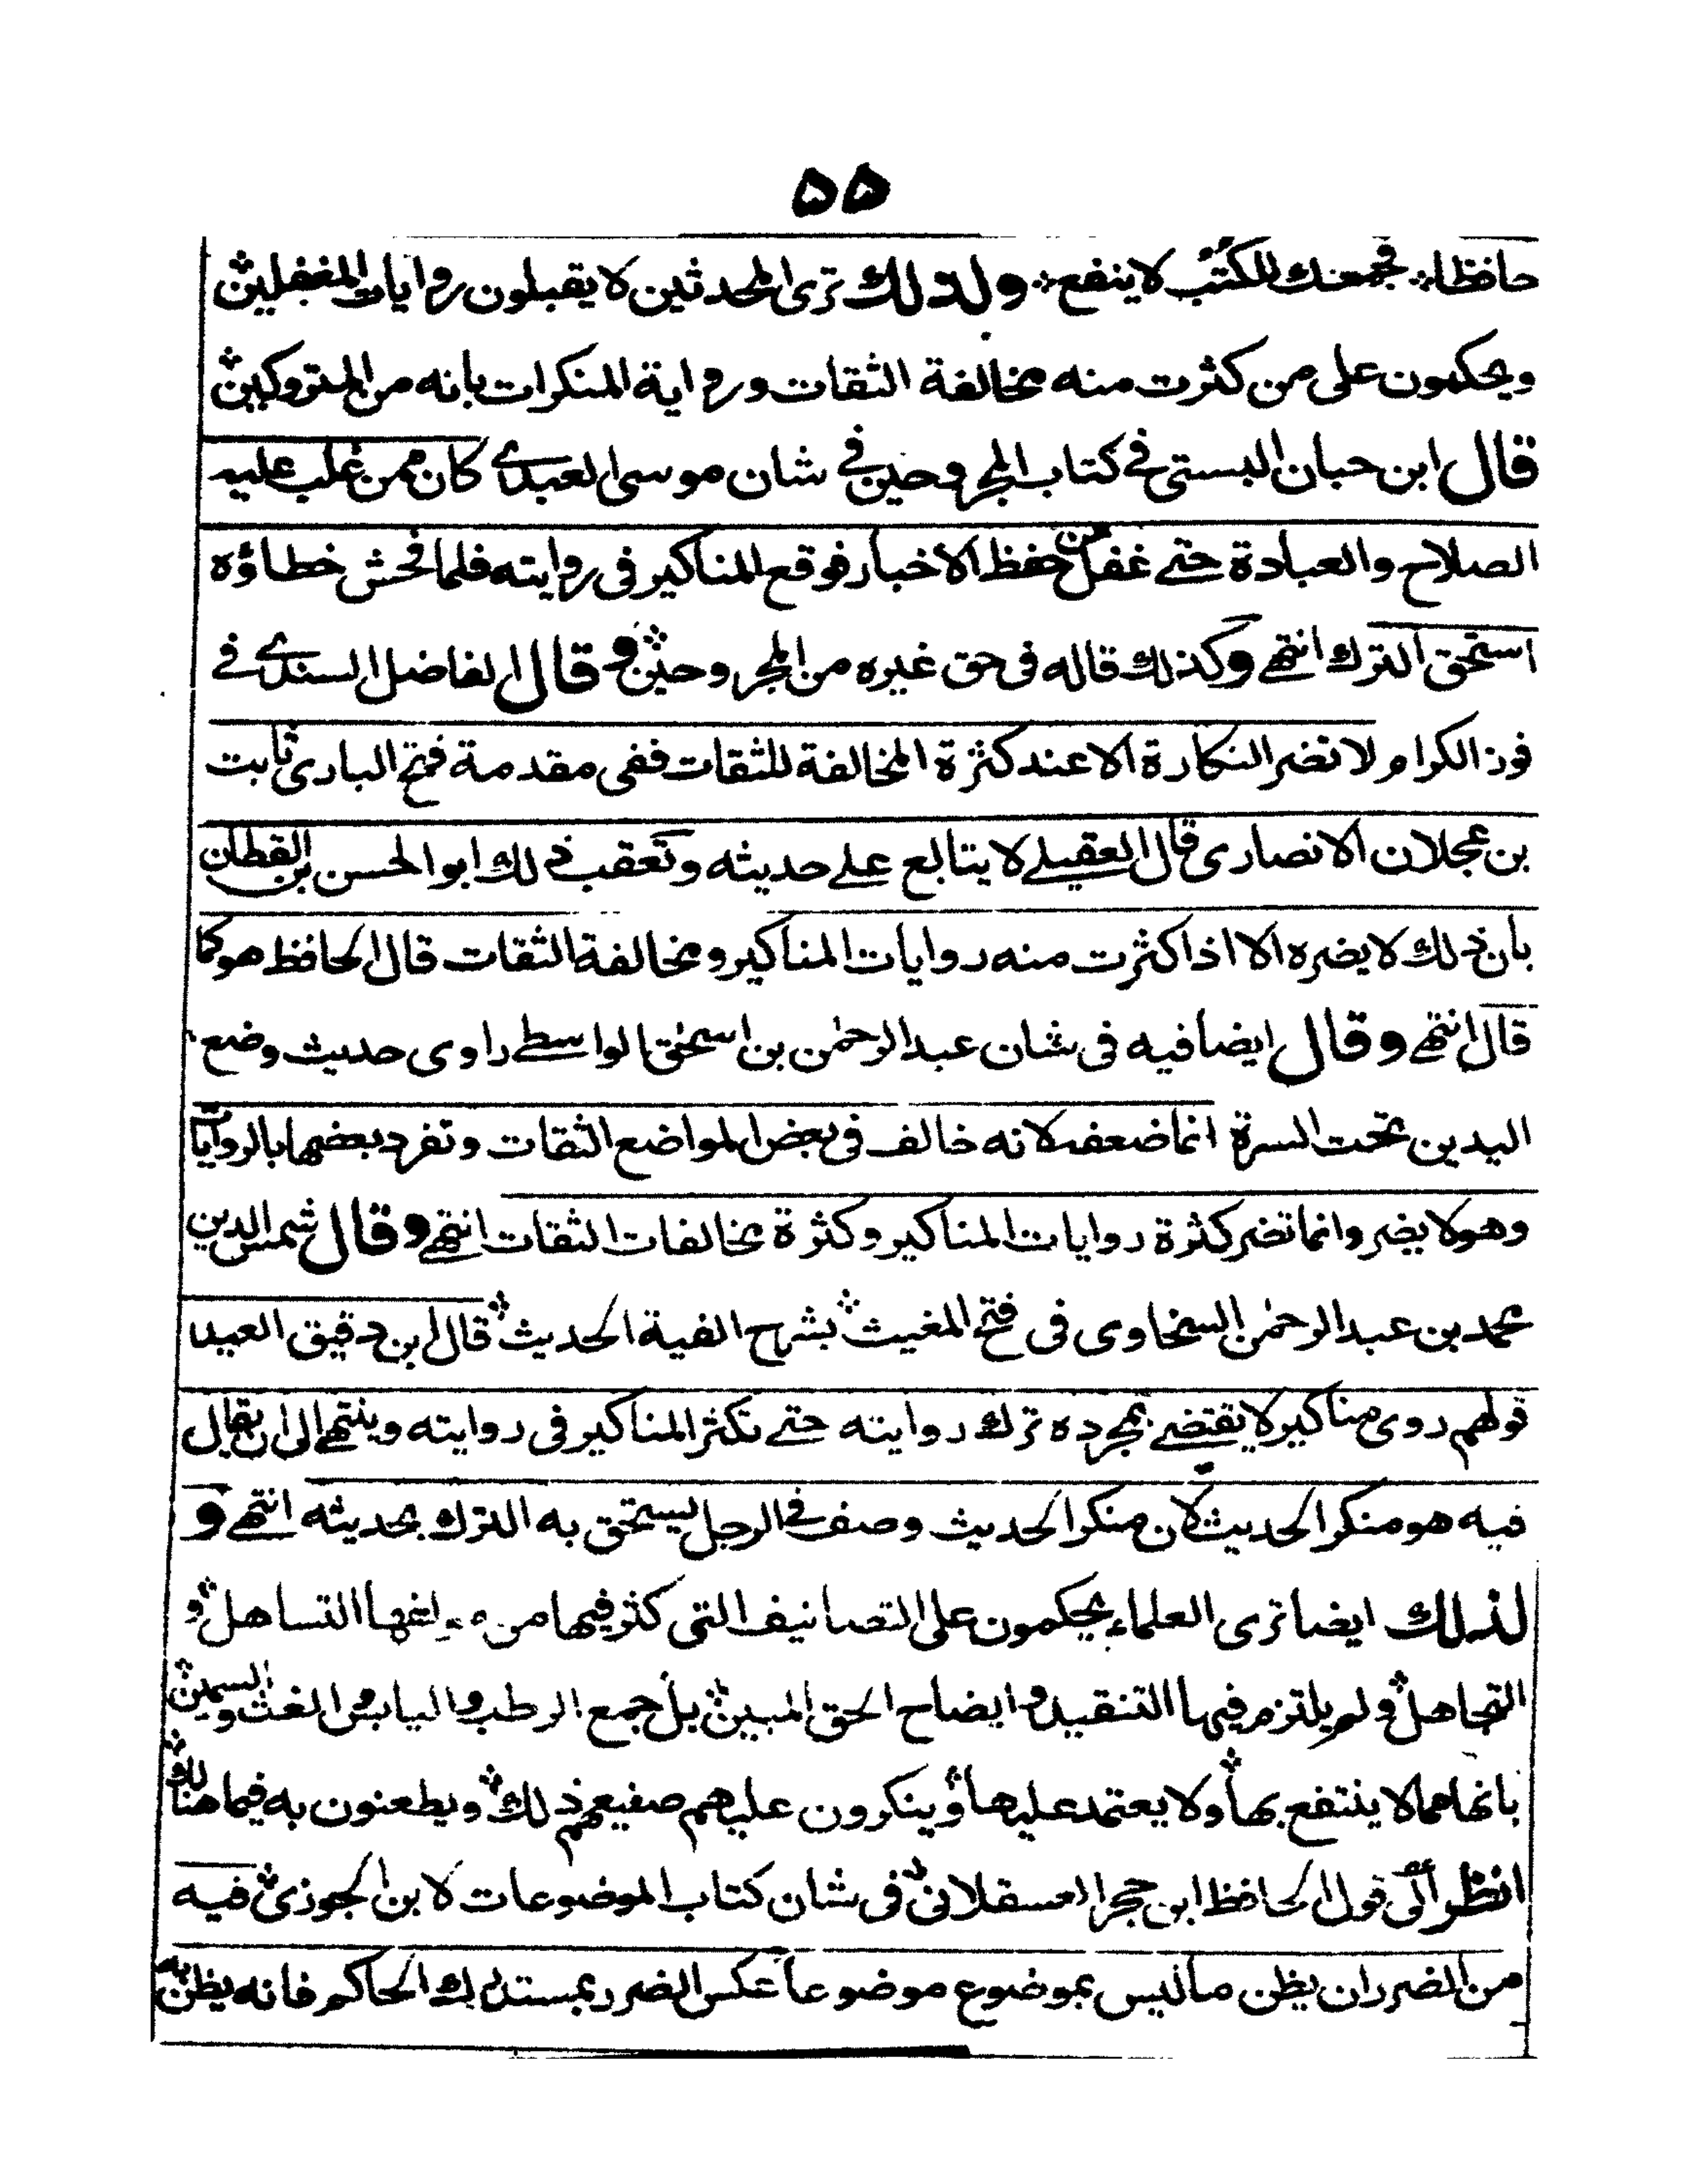 ۵۵
حافظا ؞ فجمعك للكتب لا ينفع ؞ ولذلك ترى المحدثين لا يقبلون روايات المغفلين ؞
ويحكمون على من كثرت منه مخالفة الثقات ورواية المنكرات بانه من المتروكين ؞
قال ابن حبان البستى فے كتاب المجروحين فے شان موسى العبدے كان ممن غلب عليه
الصلاح والعبادة حتے غفل عن حفظ الاخبار فوقع المناكير فى روايته فلما فحش خطاؤه
استحق الترك انتهے وكذلك قاله فى حق غيره من المجروحين ؞ وقال الفاضل السندے فے
فوز الكرام لا تضر النكارة الا عند كثرة المخالفة للثقات ففى مقدمة فتح البارى ثابت
بن عجلان الانصارى قال العقيلے لا يتابع علے حديثه وتعقب ذلك ابو الحسن بن القطان
بان ذلك لا يضره الا اذا كثرت منه روايات المناكير ومخالفة الثقات قال الحافظ هو كما
قال انتهے وقال ايضا فيه فى شان عبد الرحمٰن بن اسحٰق الواسطے راوى حديث وضع
اليدين تحت السرة انما ضعف لانه خالف فى بعض المواضع الثقات وتفرد بعضها بالروايات
وهو لا يضر وانما تضر كثرة روايات المناكير وكثرة مخالفات الثقات انتهے وقال شمس الدين
محمد بن عبد الرحمٰن السخاوى فى فتح المغيث ؞ بشرح الفية الحديث ؞ قال ابن دقيق العيد
قولهم روى مناكير لا يقتضے بمجرده ترك روايته حتے تكثر المناكير فى روايته وينتهے الى ان يقال
فيه هو منكر الحديث لان منكر الحديث وصف فے الرجل يستحق به الترك بحديثه انتهے و
لذلك ايضا ترى العلماء يحكمون على التصانيف التى كثر فيها من مؤلفها التساهل ؞ و
التجاهل ؞ ولم يلتزم فيها التنقيد وايضاح الحق المبين ؞ بل جمع الرطب واليابس والغث والسمين ؞
بانها مما لا ينتفع بها ؞ ولا يعتمد عليها ؞ وينكرون عليهم صنيعهم ذلك ؞ ويطعنون به فيما هنالك ؞
انظر الى قول الحافظ ابن حجر العسقلانى ؞ فى شان كتاب الموضوعات لابن الجوزى ؞ فيه
من الضرر ان يظن ما ليس بموضوع موضوعا عكس الضرر بمستدرك الحاكم فانه يظن به